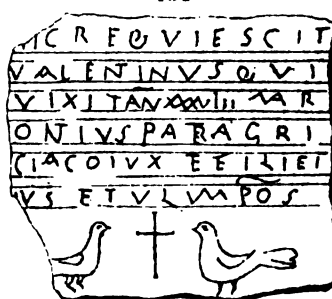 IC REQVIESCIT
VALENTINVS QVI
VIXIT AN XXXVIII MAR
ONIVS PATR AGRI
CIA COIVX EE
VS ETVLVM POS